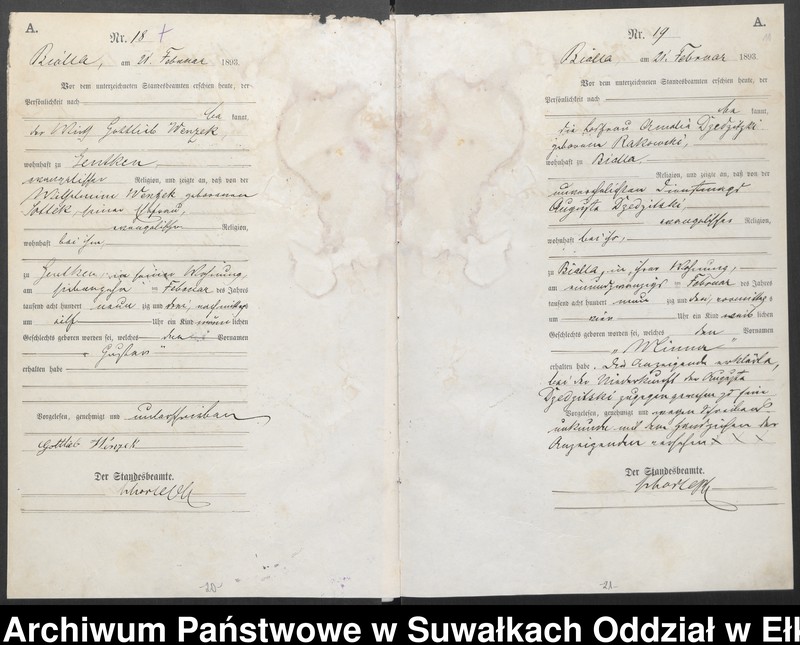 A.
Nr. 18
Bialla, am 21. Februar 1893.
Vor dem unterzeichneten Standesbeamten erschien heute, der
Persönlichkeit nach
be kannt,
der Wirth Gottlieb Wenzek,
wohnhaft zu Gentken,
evangelischer Religion, und zeigte an, daß von der
Wilhelmine Wenzek geborenen
Sottek, seiner Ehefrau,
evangelischer Religion,
wohnhaft bei ihm
zu Gentken, in seiner Wohnung,
am siebenzehn ten Februar des Jahres
tausend acht hundert neun zig und drei, nachmittags
um elf Uhr ein Kind männ lichen
Geschlechts geboren worden sei, welches den Vornamen
„Gustav"
erhalten habe
Vorgelesen, genehmigt und unterschrieben
Gottlieb Wenzek
Der Standesbeamte.
A.
Nr. 19
Bialla am 21. Februar 1893.
Vor dem unterzeichneten Standesbeamten erschien heute, der
Persönlichkeit nach
be kannt,
die Losfrau Amalie Dzedzitzki
geborene Rakowski,
wohnhaft zu Bialla
Religion, und zeigte an, daß von der
unverehelichten Dienstmagd
Auguste Dzedzitzki,
evangelischer Religion,
wohnhaft bei ihr,
zu Bialla, in ihrer Wohnung,
am einundzwanzigs ten Februar des Jahres
tausend acht hundert neun zig und drei, vormittags
um vier Uhr ein Kind weib lichen
Geschlechts geboren worden sei, welches den Vornamen
„Minna"
erhalten habe. Die Anzeigende erklärte,
bei der Niederkunft der Auguste
Dzedzitzki zugegen gewesen zu sein
Vorgelesen, genehmigt und wegen Schreibens-
unkunde mit dem Handzeichen der
Anzeigenden versehen x x x
Der Standesbeamte.
20
21
Archiwum Państwowe w Suwałkach Oddział w Ełk